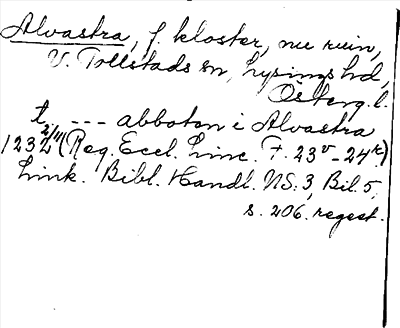 Alvastra, f. kloster, nu ruin,
V. Tollstads sn, Lysings hd,
Österg. l.
t. --- abboten i Alvastra
1232 2/11 (Reg. Eccl. Linc. F. 23v-24r)
Link. Bibl. Handl. NS: 3, Bil. 5,
s. 206. regest.